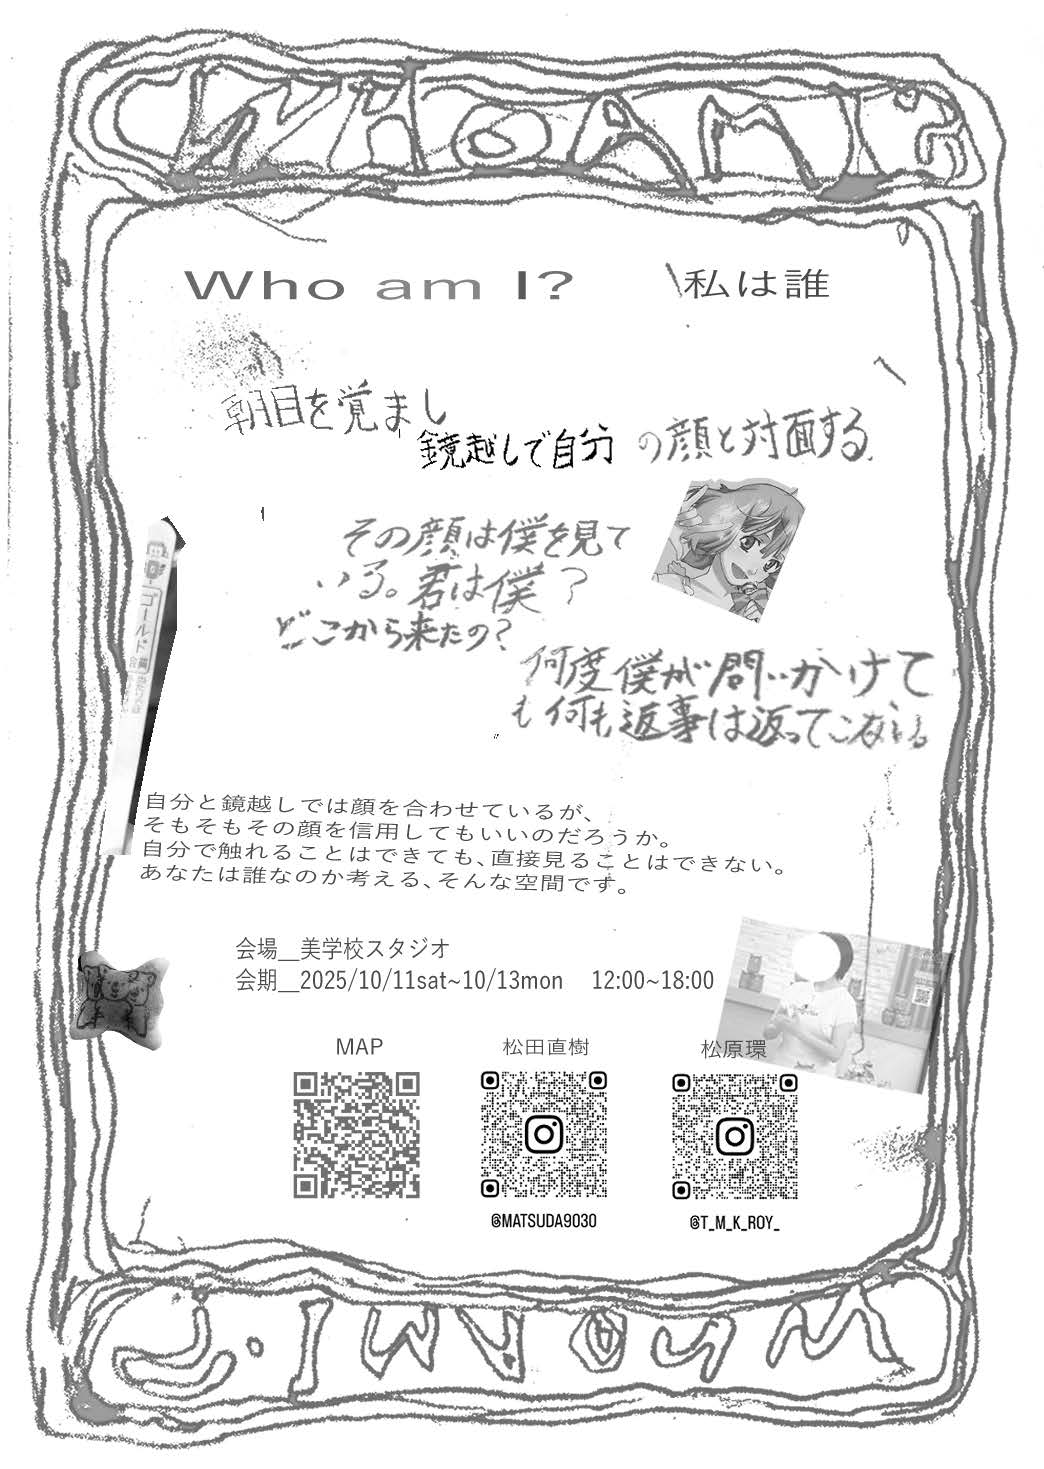 WHO AM I?
Who am I? \私は誰
朝目を覚まし
鏡越しで自分の顔と対面する
その顔は僕を見て
いる。君は僕?
どこから来たの?
何度僕が問いかけて
も何も返事は返ってこない
ゴールド
自分と鏡越しでは顔を合わせているが、
そもそもその顔を信用してもいいのだろうか。
自分で触れることはできても、直接見ることはできない。
あなたは誰なのか考える、そんな空間です。
会場__美学校スタジオ
会期__2025/10/11sat~10/13mon 12:00~18:00
MAP
松田直樹
松原環
@MATSUDA9030
@T_M_K_ROY_
Who am I?